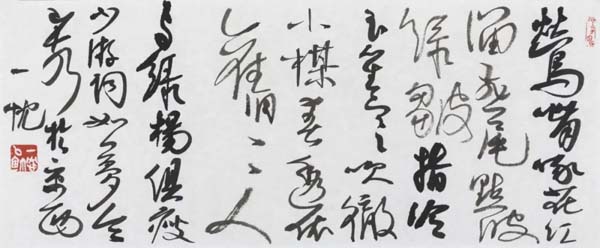 鶯嘴啄花红
溜燕尾點波
绿皺指冷
玉笙寒吹徹
小楳春透依
舊〻〻人
与绿楊俱瘦
少游詞如夢令
於京西
一忱